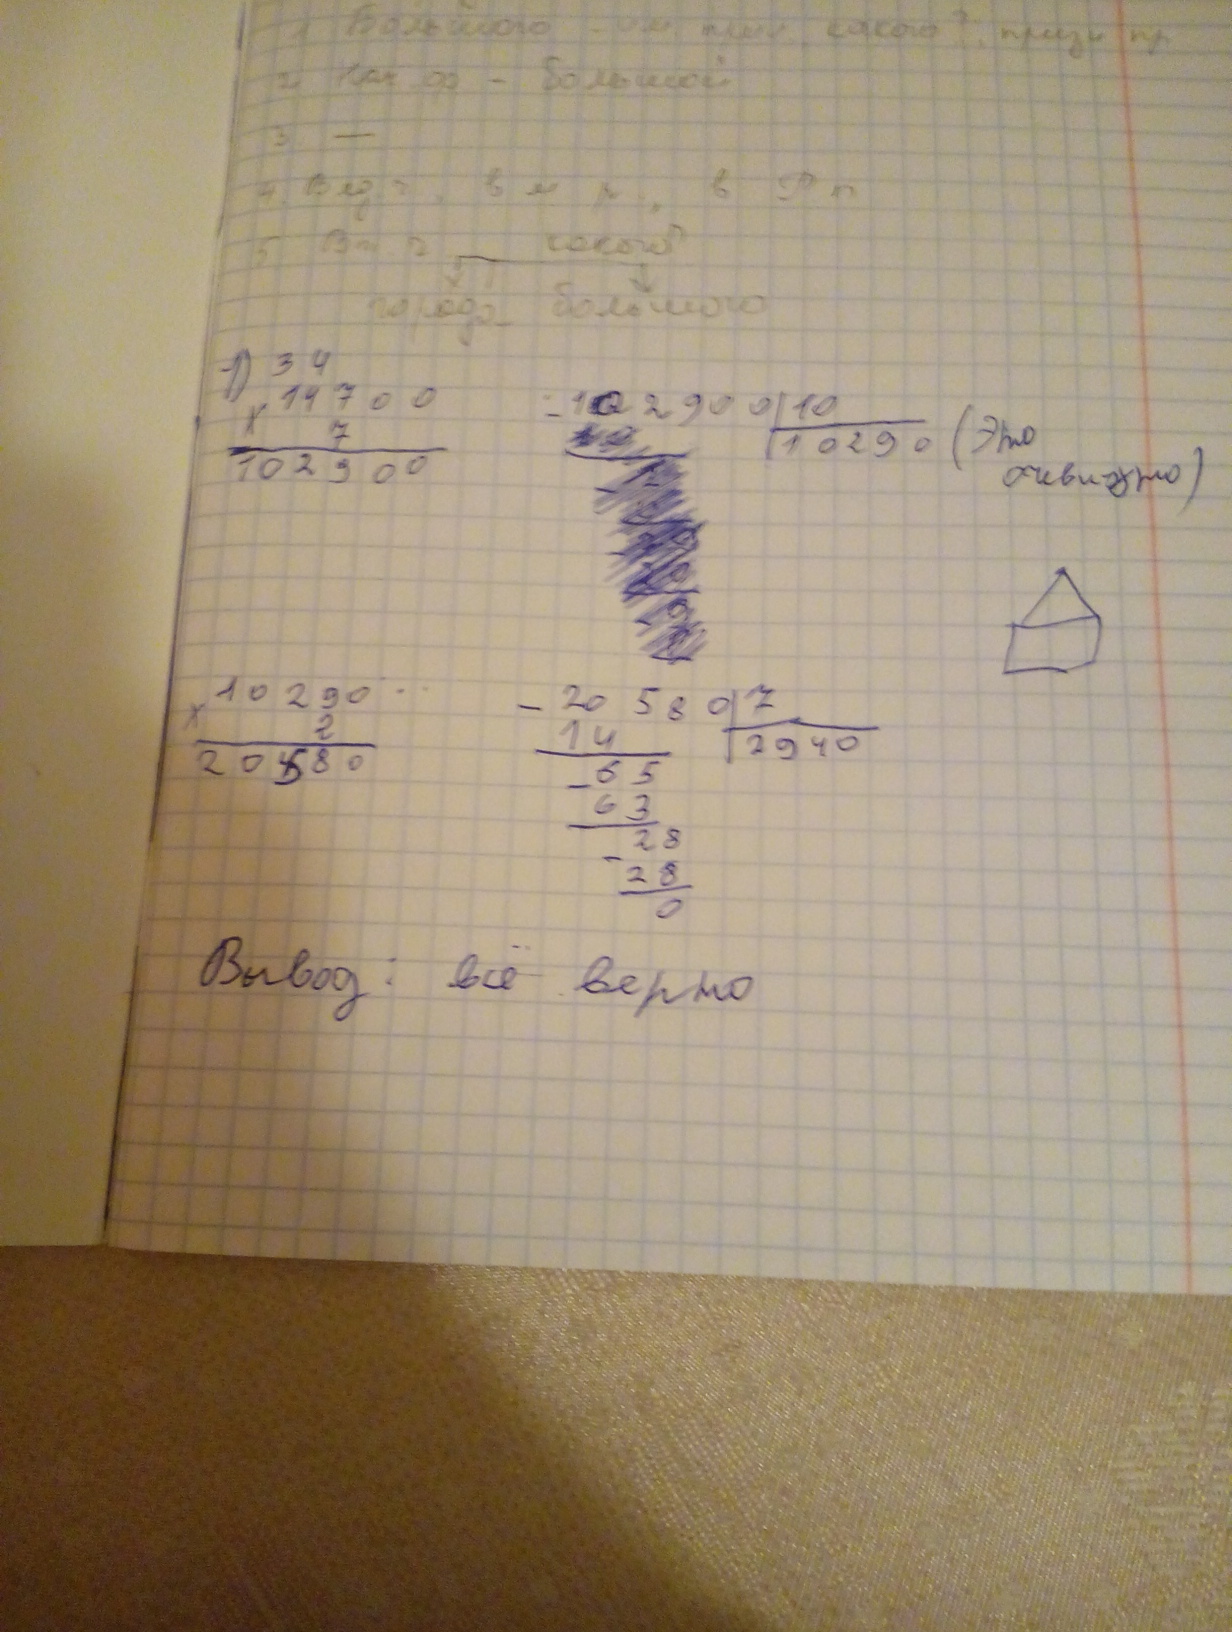 1. Большого - им. прил. какого? призн пр
2. Нач. ф - большой
3. —
4. Ед. ч., в м. р., в Р. п
5. какого?
города большого
1) 34
14700
× 7
102900
- 102900 | 10
10290 (Это
очевидно)
10290
× 2
20580
- 20580 | 7
14 | 2940
- 65
63
- 28
28
0
Вывод: всё верно